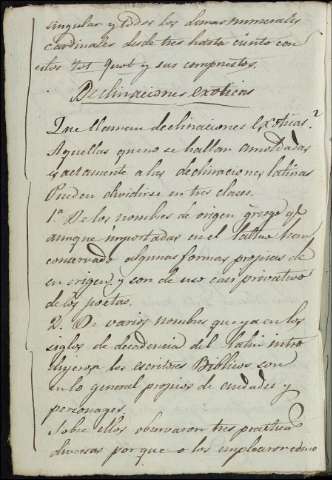 singular y todos los demas numerales
cardinales desde tres hasta ciento con
estos tot quot y sus compuestos.
Declinaciones exoticas
Que llaman declinaciones Exoticas?
Aquellas que no se hallan amoldadas
exactamente a las declinaciones latinas
Pueden dividirse en tres clases.
1ª De los nombres de origen griego q.
aunque importadas en el latin han
conservado algunas formas propias de
su origen, y son de uso casi privativo
de los poetas.
2. De varios nombres que ya en los
siglos de decadencia del latin intro
dugeron los escritores Biblicos son
en lo general propios de ciudades y
personages.
Sobre ellos observaron tres practicas
diversas porque o los emplearon como